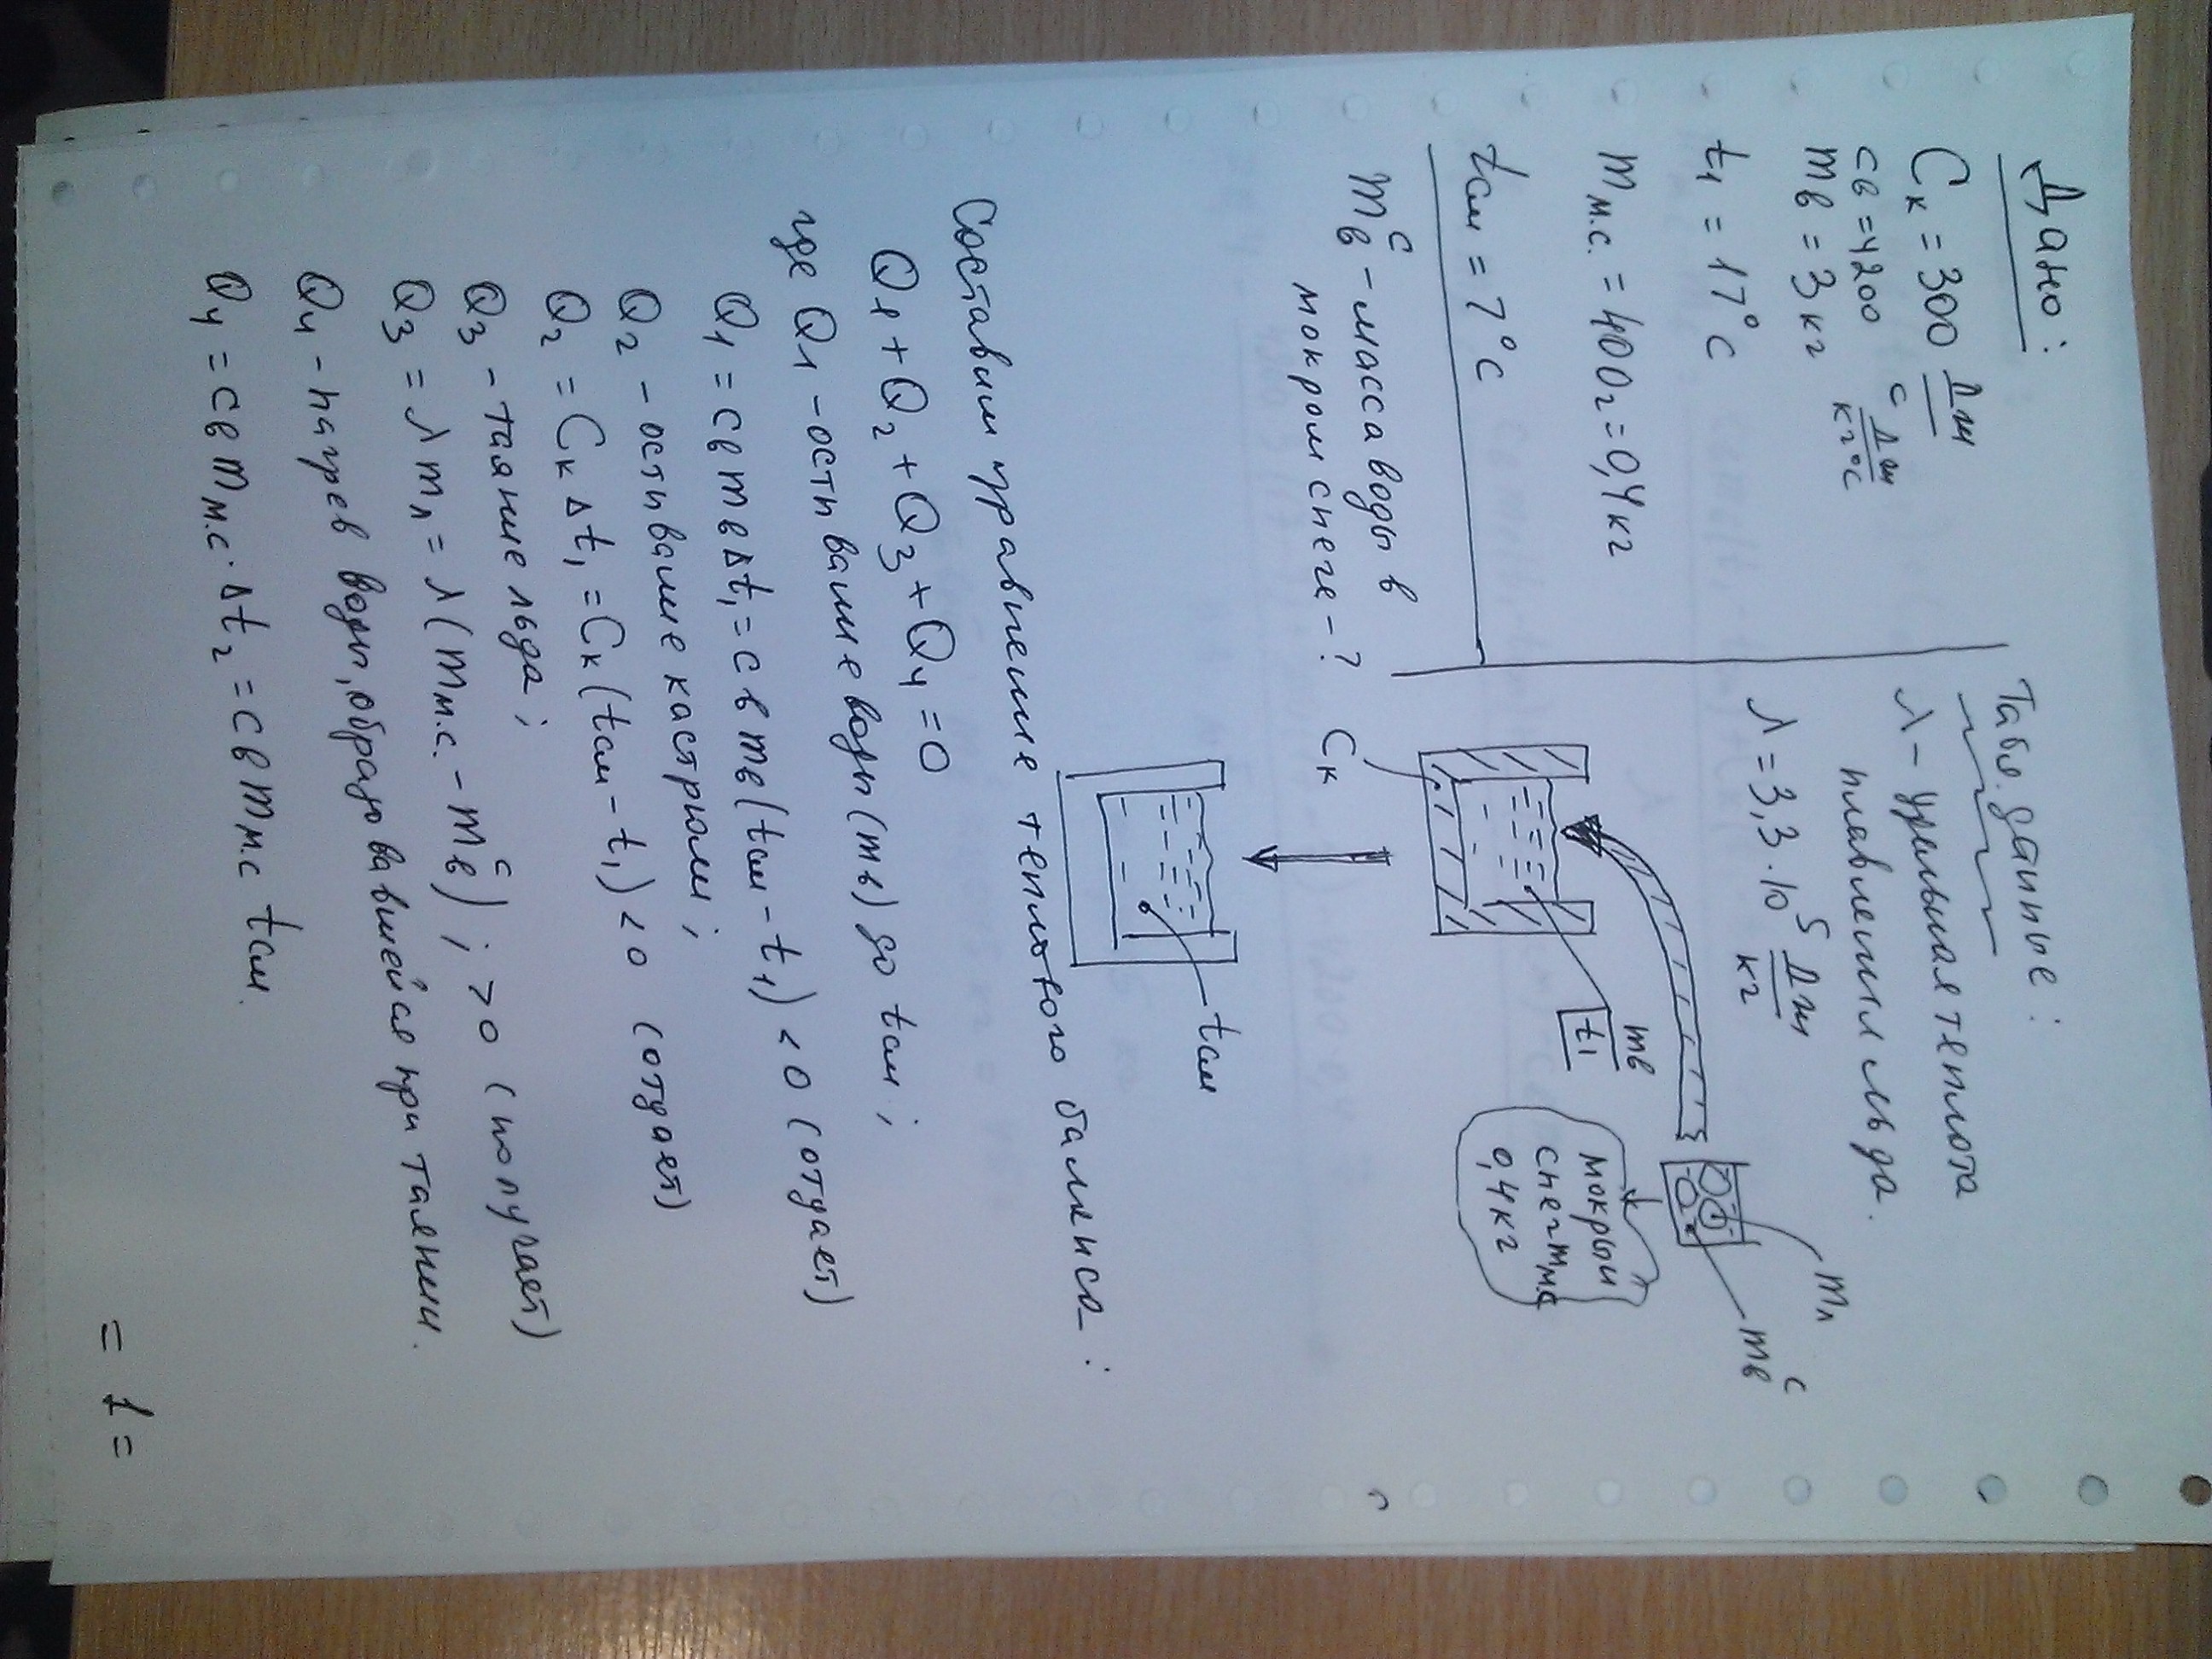 Дано:
Cк = 300 Дж/°C
cв = 4200 Дж/кг°C
mв = 3 кг
t1 = 17°C
mм.с. = 400г = 0,4 кг
tсм = 7°C
mвᶜ - масса воды в
мокром снеге - ?
Табл. данные:
λ - удельная теплота
плавления льда.
λ = 3,3·10⁵ Дж/кг
mл
mвᶜ
мокрый
снег mмс
0,4 кг
mв
t1
Cк
tсм
Составим уравнение теплового баланса:
Q1 + Q2 + Q3 + Q4 = 0
где Q1 - остывание воды (mв) до tсм;
Q1 = cв mв Δt1 = cв mв (tсм - t1) < 0 (отдает)
Q2 - остывание кастрюли;
Q2 = Cк Δt1 = Cк (tсм - t1) < 0 (отдает)
Q3 - таяние льда;
Q3 = λ mл = λ (mм.с. - mвᶜ); > 0 (получает)
Q4 - нагрев воды, образовавшейся при таянии.
Q4 = cв mм.с · Δt2 = cв mм.с tсм.